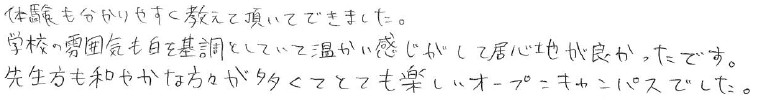 体験も分かりやすく教えて頂いてできました。
学校の雰囲気も白を基調としていて温かい感じがして居心地が良かったです。
先生方も和やかな方々が多くてとても楽しいオープンキャンパスでした。